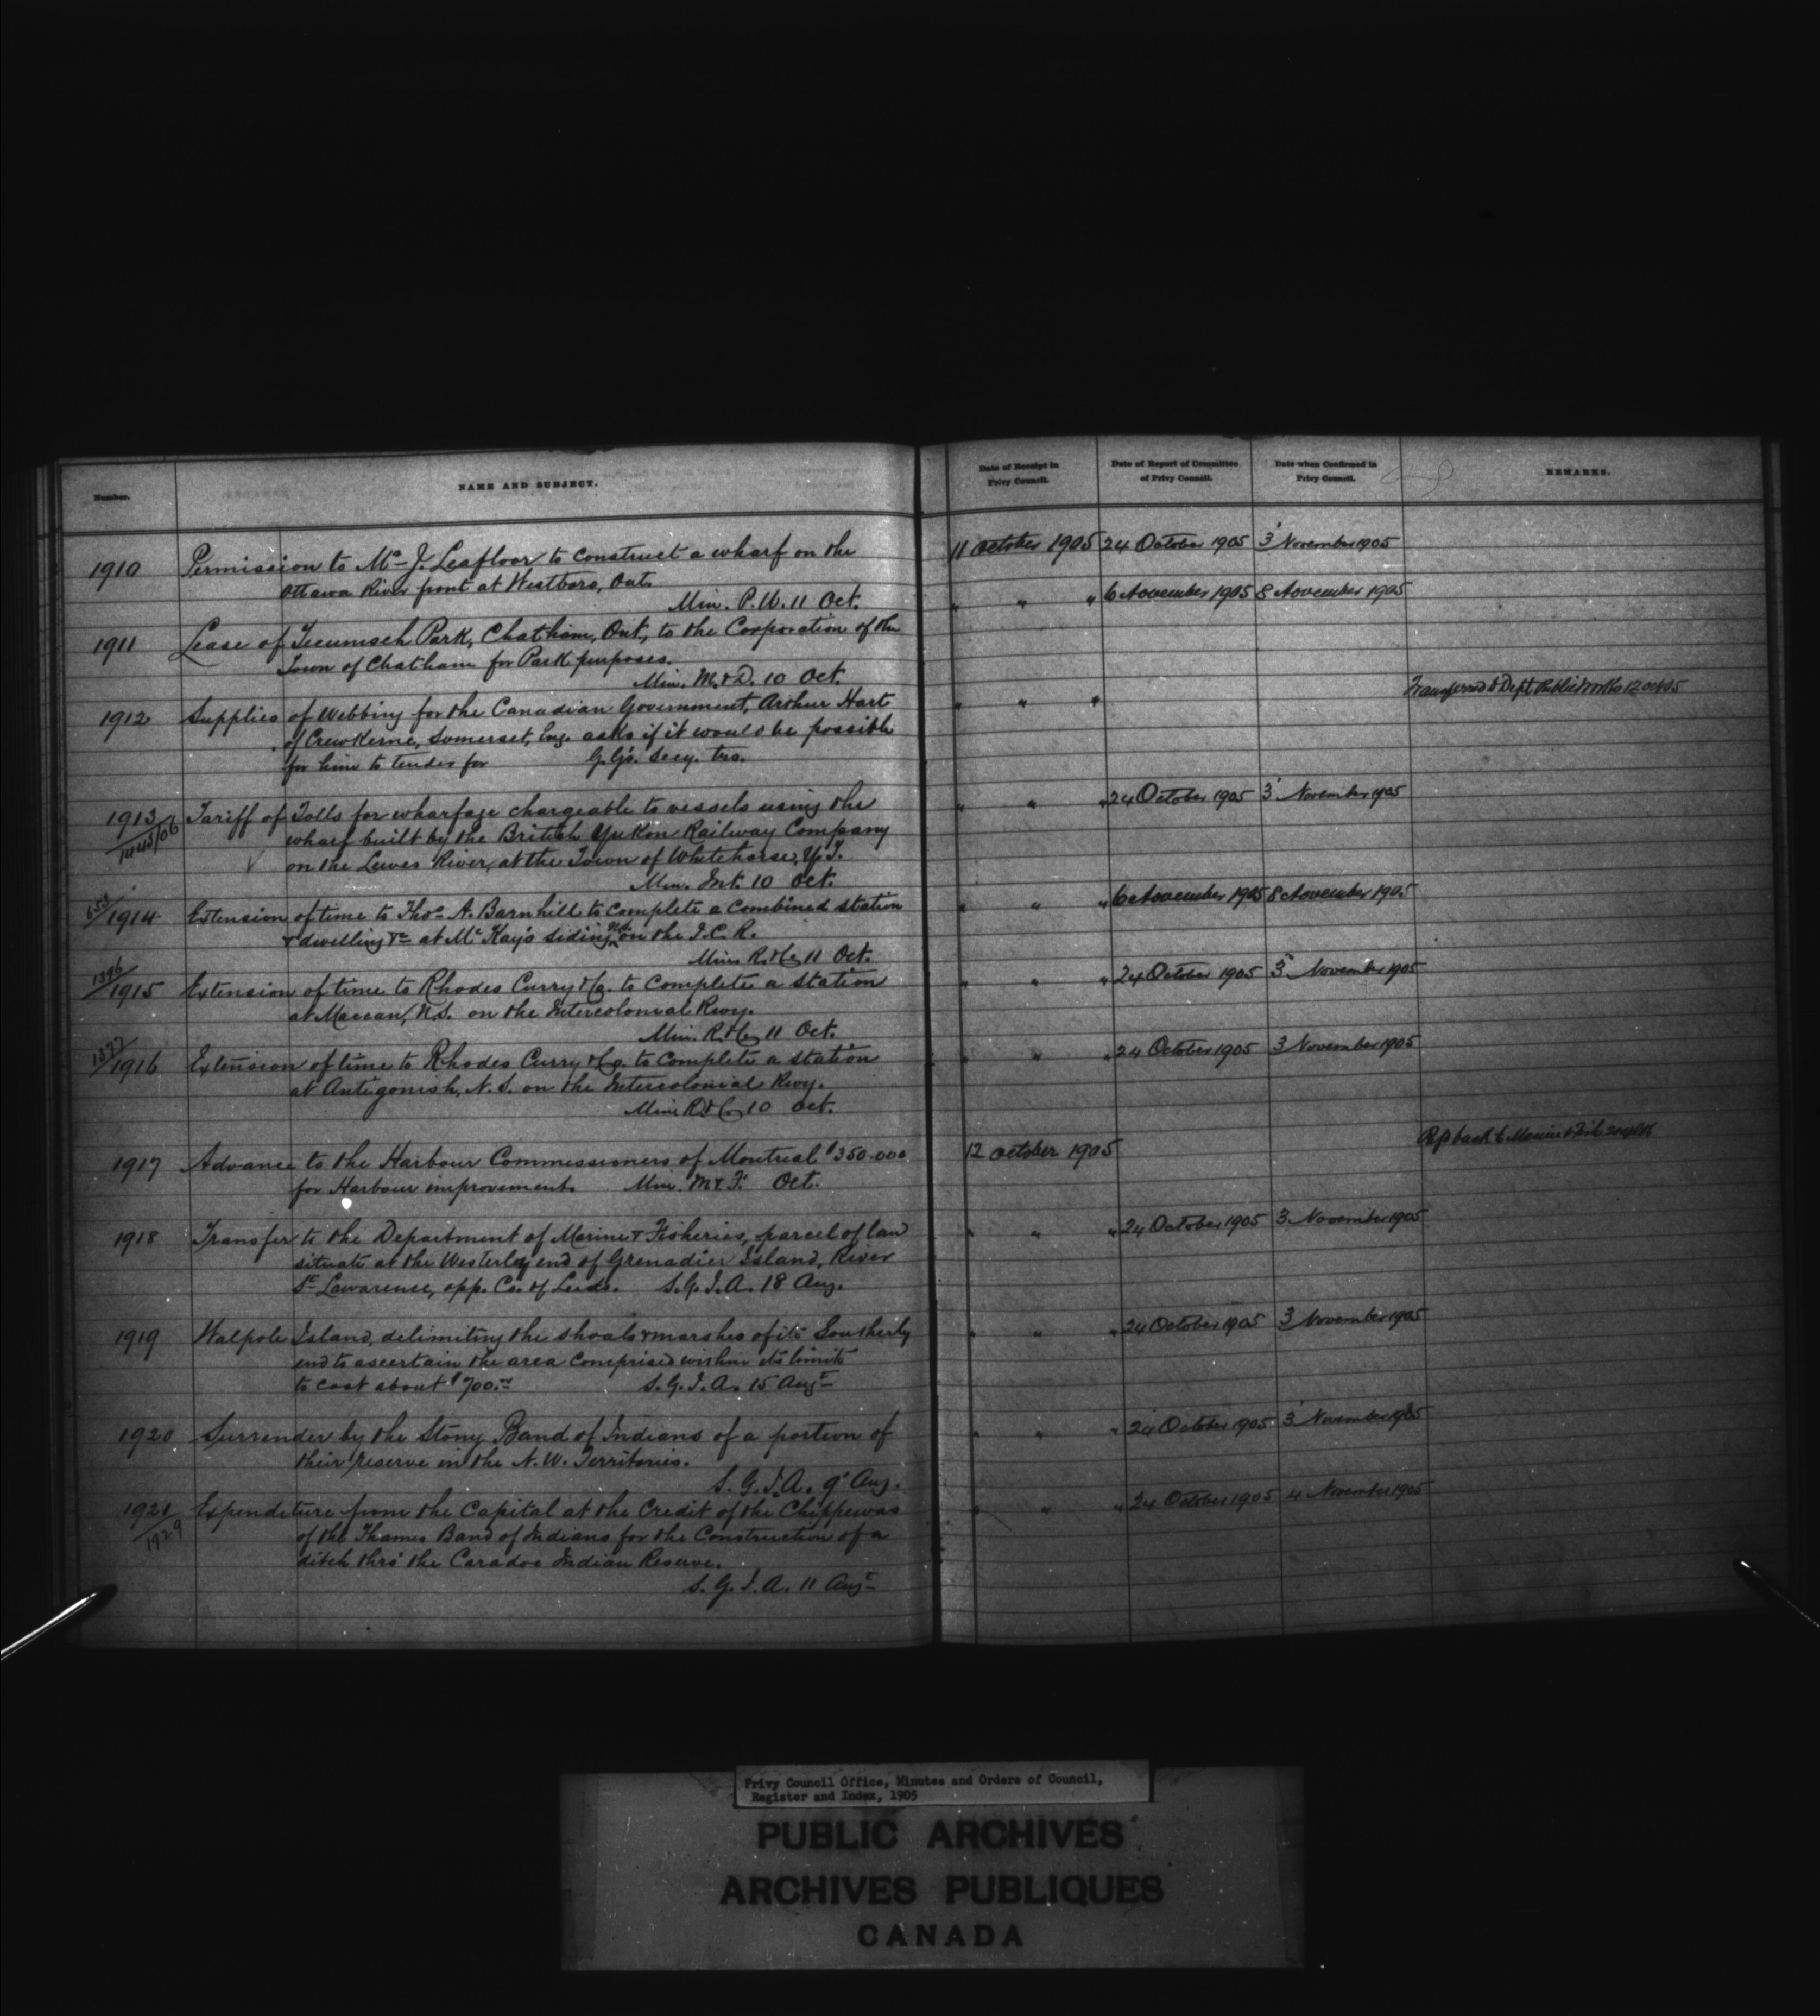 Number.
NAME AND SUBJECT.
Date of Receipt in
Privy Council.
Date of Report of Committee
of Privy Council.
Date when Confirmed in
Privy Council.
REMARKS.
1910 Permission to Mr J. Leafloor to construct a wharf on the
Ottawa River front at Westboro, Ont.
Min. P.W. 11 Oct.
11 October 1905 24 October 1905 3 November 1905
1911 Lease of Tecumseh Park, Chatham, Ont, to the Corporation of the
Town of Chatham for Park purposes.
Min. M. & D. 10 Oct.
" " " 6 November 1905 8 November 1905
1912 Supplies of Webbing for the Canadian Government, Arthur Hart
of Crewkerne, Somerset, Eng. asks if it would be possible
for him to tender for G.G's. Secy. trs.
" " " Transferred to Dept Public Works 12 Oct 05
1913 Tariff of Tolls for wharfage chargeable to vessels using the
1445/06 wharf built by the British Yukon Railway Company
on the Lewes River, at the Town of Whitehorse, Y.T.
Min. Int. 10 Oct.
" " " 24 October 1905 3 November 1905
1914 Extension of time to Thos A. Barnhill to complete a combined station
& dwelling &c at Mc Kay's siding N.S. on the I.C.R.
Min R. & C. 11 Oct.
" " " 6 November 1905 8 November 1905
1396/1915 Extension of time to Rhodes Curry & Co. to complete a station
at Maccan, N.S. on the Intercolonial Rwy.
Min. R. & C. 11 Oct.
" " " 24 October 1905 3 November 1905
1377/1916 Extension of time to Rhodes Curry & Co. to complete a station
at Antigonish, N.S. on the Intercolonial Rwy.
Min R. & C. 10 Oct.
" " " 24 October 1905 3 November 1905
1917 Advance to the Harbour Commissioners of Montreal $350.000
for Harbour improvements Min. M. & F. Oct.
12 October 1905 back to Marine & Fish
1918 Transfer to the Department of Marine & Fisheries, parcel of lan
situate at the Westerley end of Grenadier Island, River
St Lawarence, opp. Co. of Leeds. S.G.I.A. 18 Aug.
" " " 24 October 1905 3 November 1905
1919 Walpole Island, delimiting the shoals & marshes of its Southerly
end to ascertain the area comprised within its limits
to cost about $700.00 S.G.I.A. 15 Augt
" " " 24 October 1905 3 November 1905
1920 Surrender by the Stony Band of Indians of a portion of
their reserve in the N.W. Territories.
S.G.I.A. 9 Aug.
" " " 24 October 1905 3 November 1905
1921 Expenditure from the Capital at the Credit of the Chippewas
1929 of the Thames Band of Indians for the Construction of a
ditch thro' the Caradoc Indian Reserve.
S.G.I.A. 11 Augt
" " " 24 October 1905 4 November 1905
Privy Council Office, Minutes and Orders of Council,
Register and Index, 1905
PUBLIC ARCHIVES
ARCHIVES PUBLIQUES
CANADA